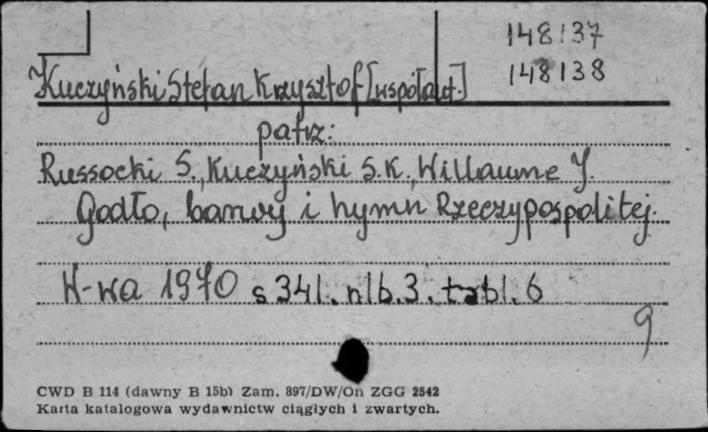 148137
148138
Kuczyński Stefan Krzysztof [współaut.]
patrz:
Russocki S., Kuczyński S.K., Willaume J.
Godło, barwy i hymn Rzeczypospolitej.
W-wa 1970 s 341. nlb. 3. tabl. 6
9
CWD B 114 (dawny B 15b) Zam. 897/DW/On ZGG 2542
Karta katalogowa wydawnictw ciągłych i zwartych.